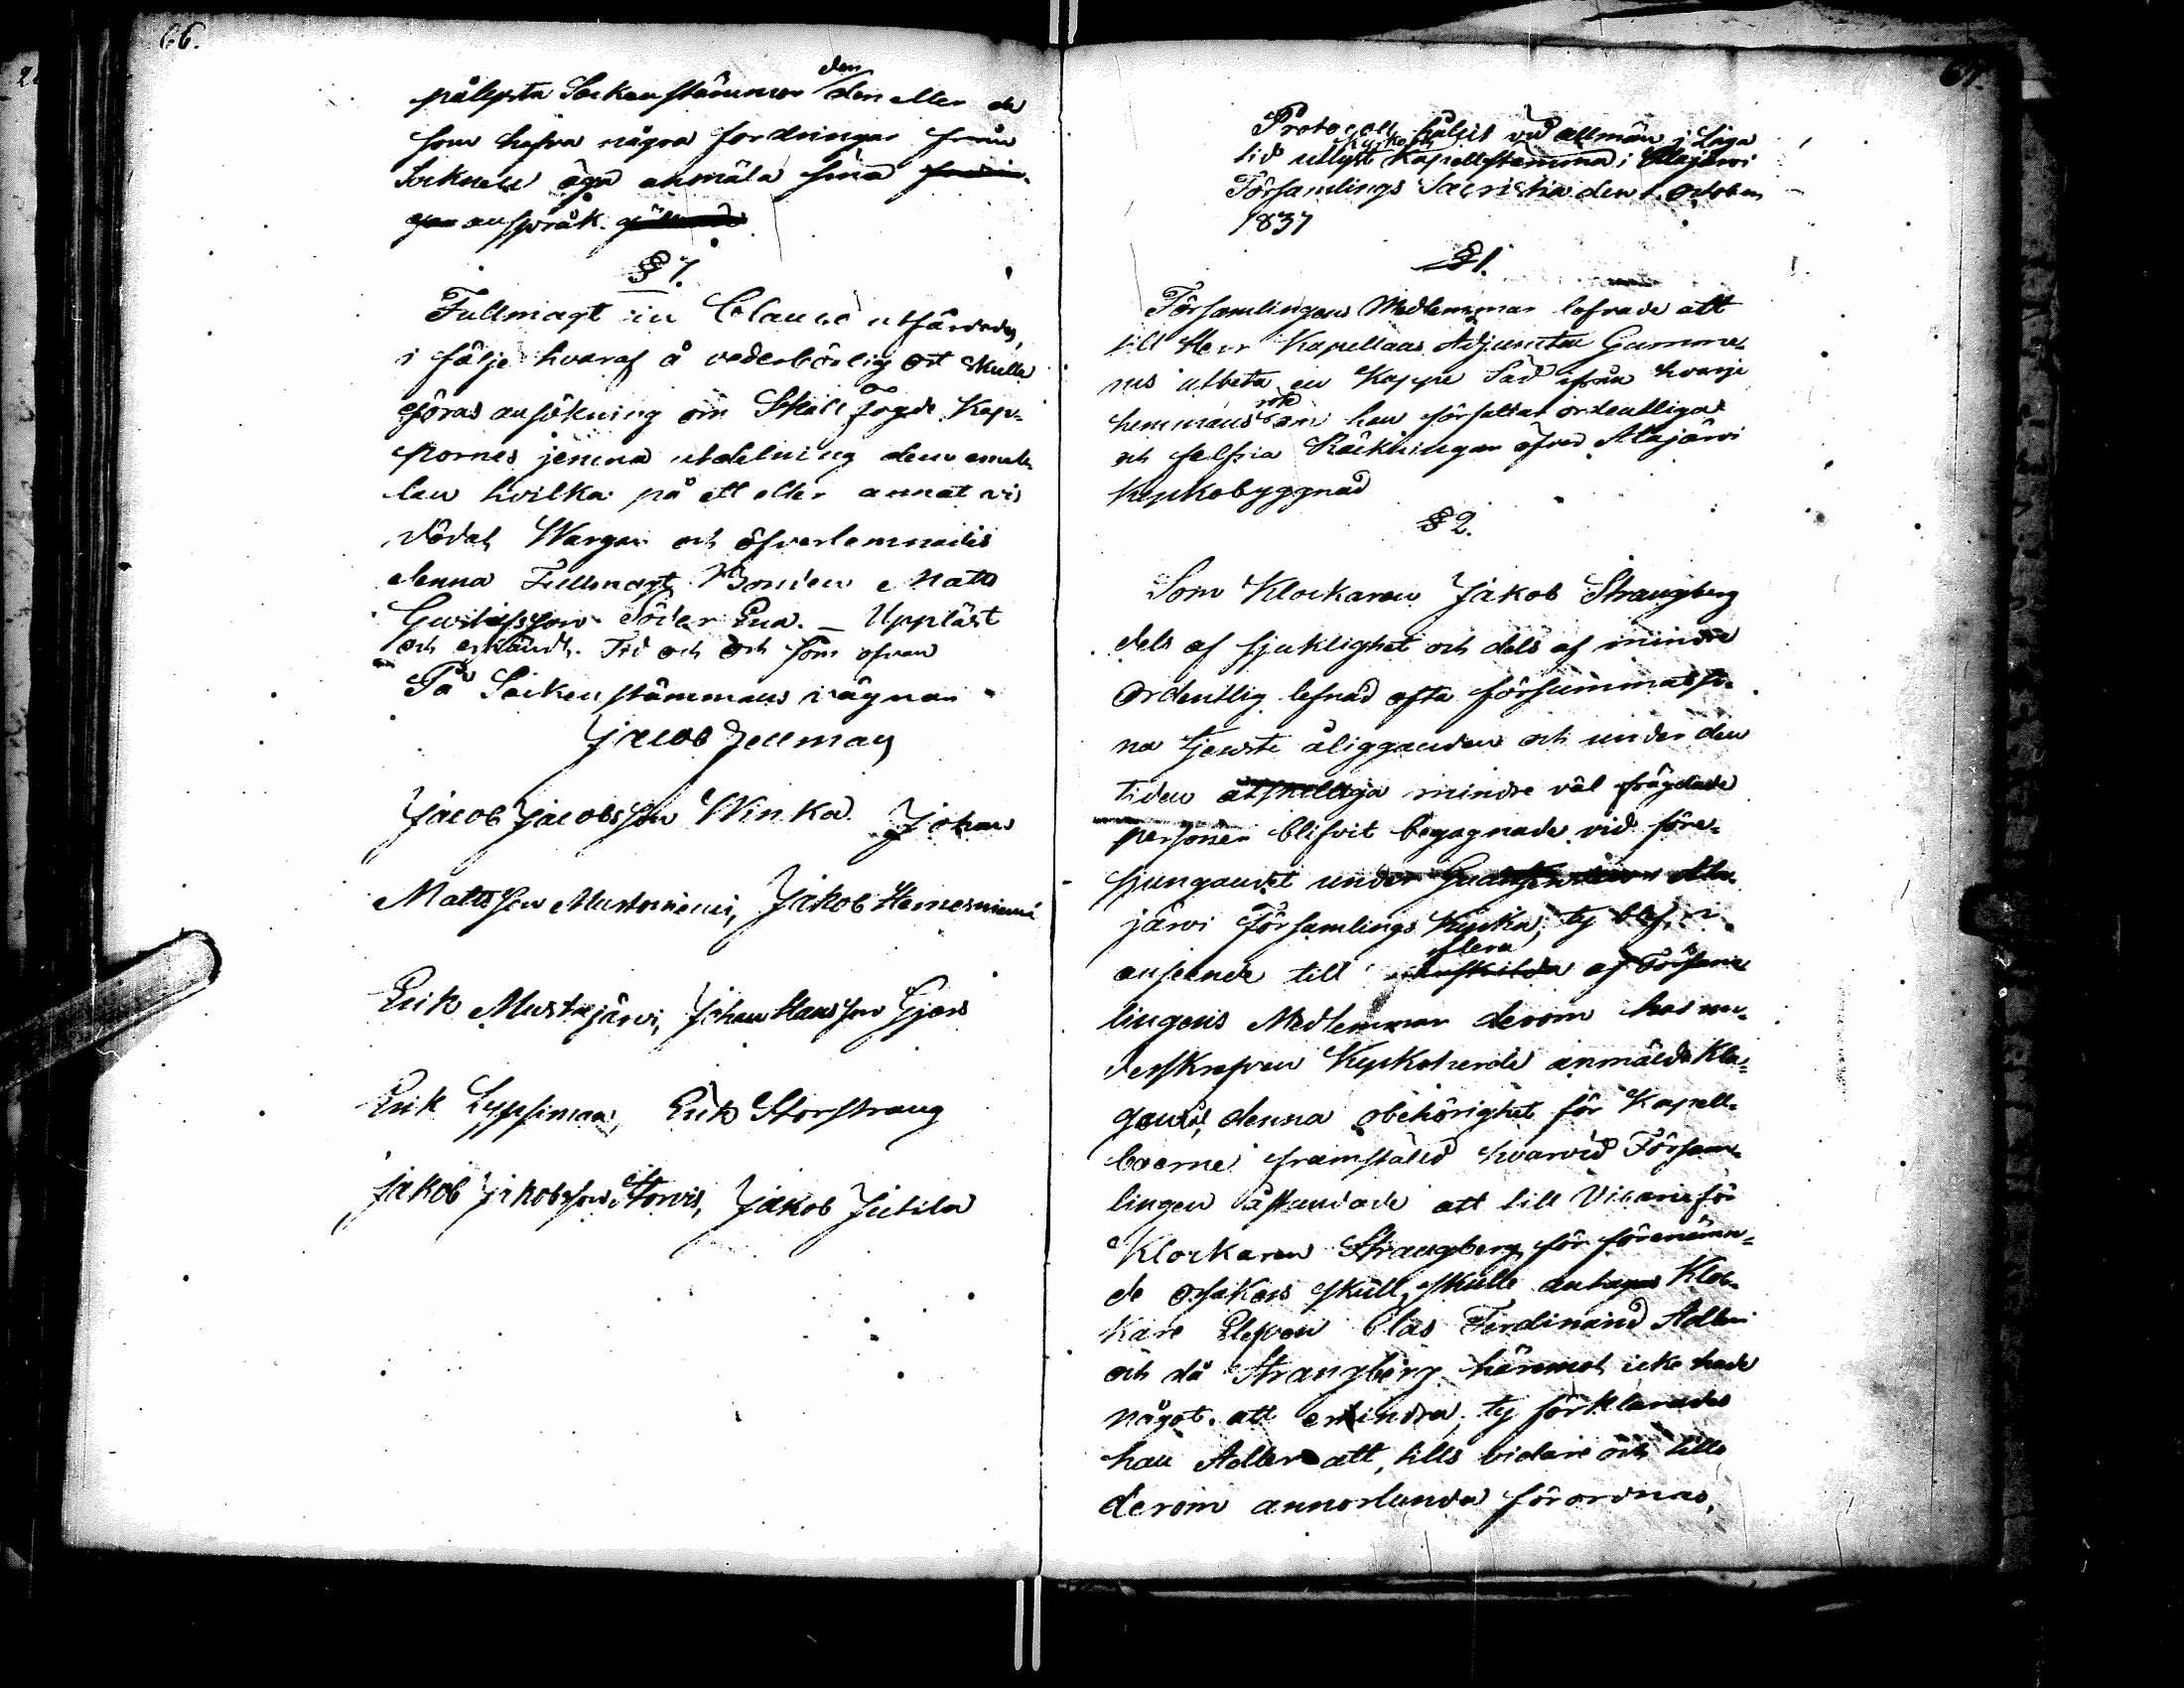 66.
pålysta Sockenstämmor den den eller de
som hafva några fordringar från
Socknen äga anmäla sina fordrin-
gar anspråk
§ 7.
Fullmagt in Blanco utfärdades,
i följe hvaraf å vederbörlig ort skulle
göras ansökning om Skallfogde Kap-
pornes jemna utdelning dem emel-
lan hvilka på ett eller annat vis
dödat Wargar och öfverlemnades
denna Fullmagt Bonden Matts
Gustafsson Söder Ena. — Uppläst
och erkändt. Tid och Ort som ofvan
På Sockenstämmans vägnar
Jacob Jellman
Jacob Jacobsson Winka Johan
Mattsson Mustoniemi, Jakob Hernesniemi
Erik Mustajärvi, Johan Hansson Gjers
Erik Typpimaa, Erik Storstrang
Jakob Jakobsson Storvis, Jakob Jutila
67.
Protocoll hållit vid allmän i Laga
tid utlyst Kyrko och Kapellstämma i Alajärvi
Församlings Sacristia den 1. October
1837
§ 1.
Församlingens Medlemmar lofvade att
till Herr Kapellans Adjuncten Gumme-
rus utbeta en Kappe Säd ifrån hvarje
hemmans rök om han författar ordentliga
och felfria Räkningar öfver Alajärvi
Kyrkobyggnad
§ 2.
Som Klockaren Jakob Strangberg
dels af sjuklighet och dels af mindre
ordentlig lefnad ofta försummat si-
na tjenste åligganden och under den
tiden åtskilliga mindre väl frägdade
personer blifvit begagnade vid före-
sjungandet under Ala-
järvi Församlings Kyrka; ty blef i
anseende till flera enskilda af Försam-
lingens Medlemmar derom hos un-
derskrefven Kyrkoherde anmälde Kla-
gan, denna obehörighet för Kapell-
boerne framstäld hvarvid Försam-
lingen åstundade att till Vicarie för
Klockaren Strangberg för förenämn-
de orsakers skull, skulle antagas Kloc-
kare Elefven Clas Ferdinand Adler
och då Strangberg häremot icke hade
något att erindra, ty förklarades
han Adler att, tills vidare och tills
derom annorlunda förordnas,